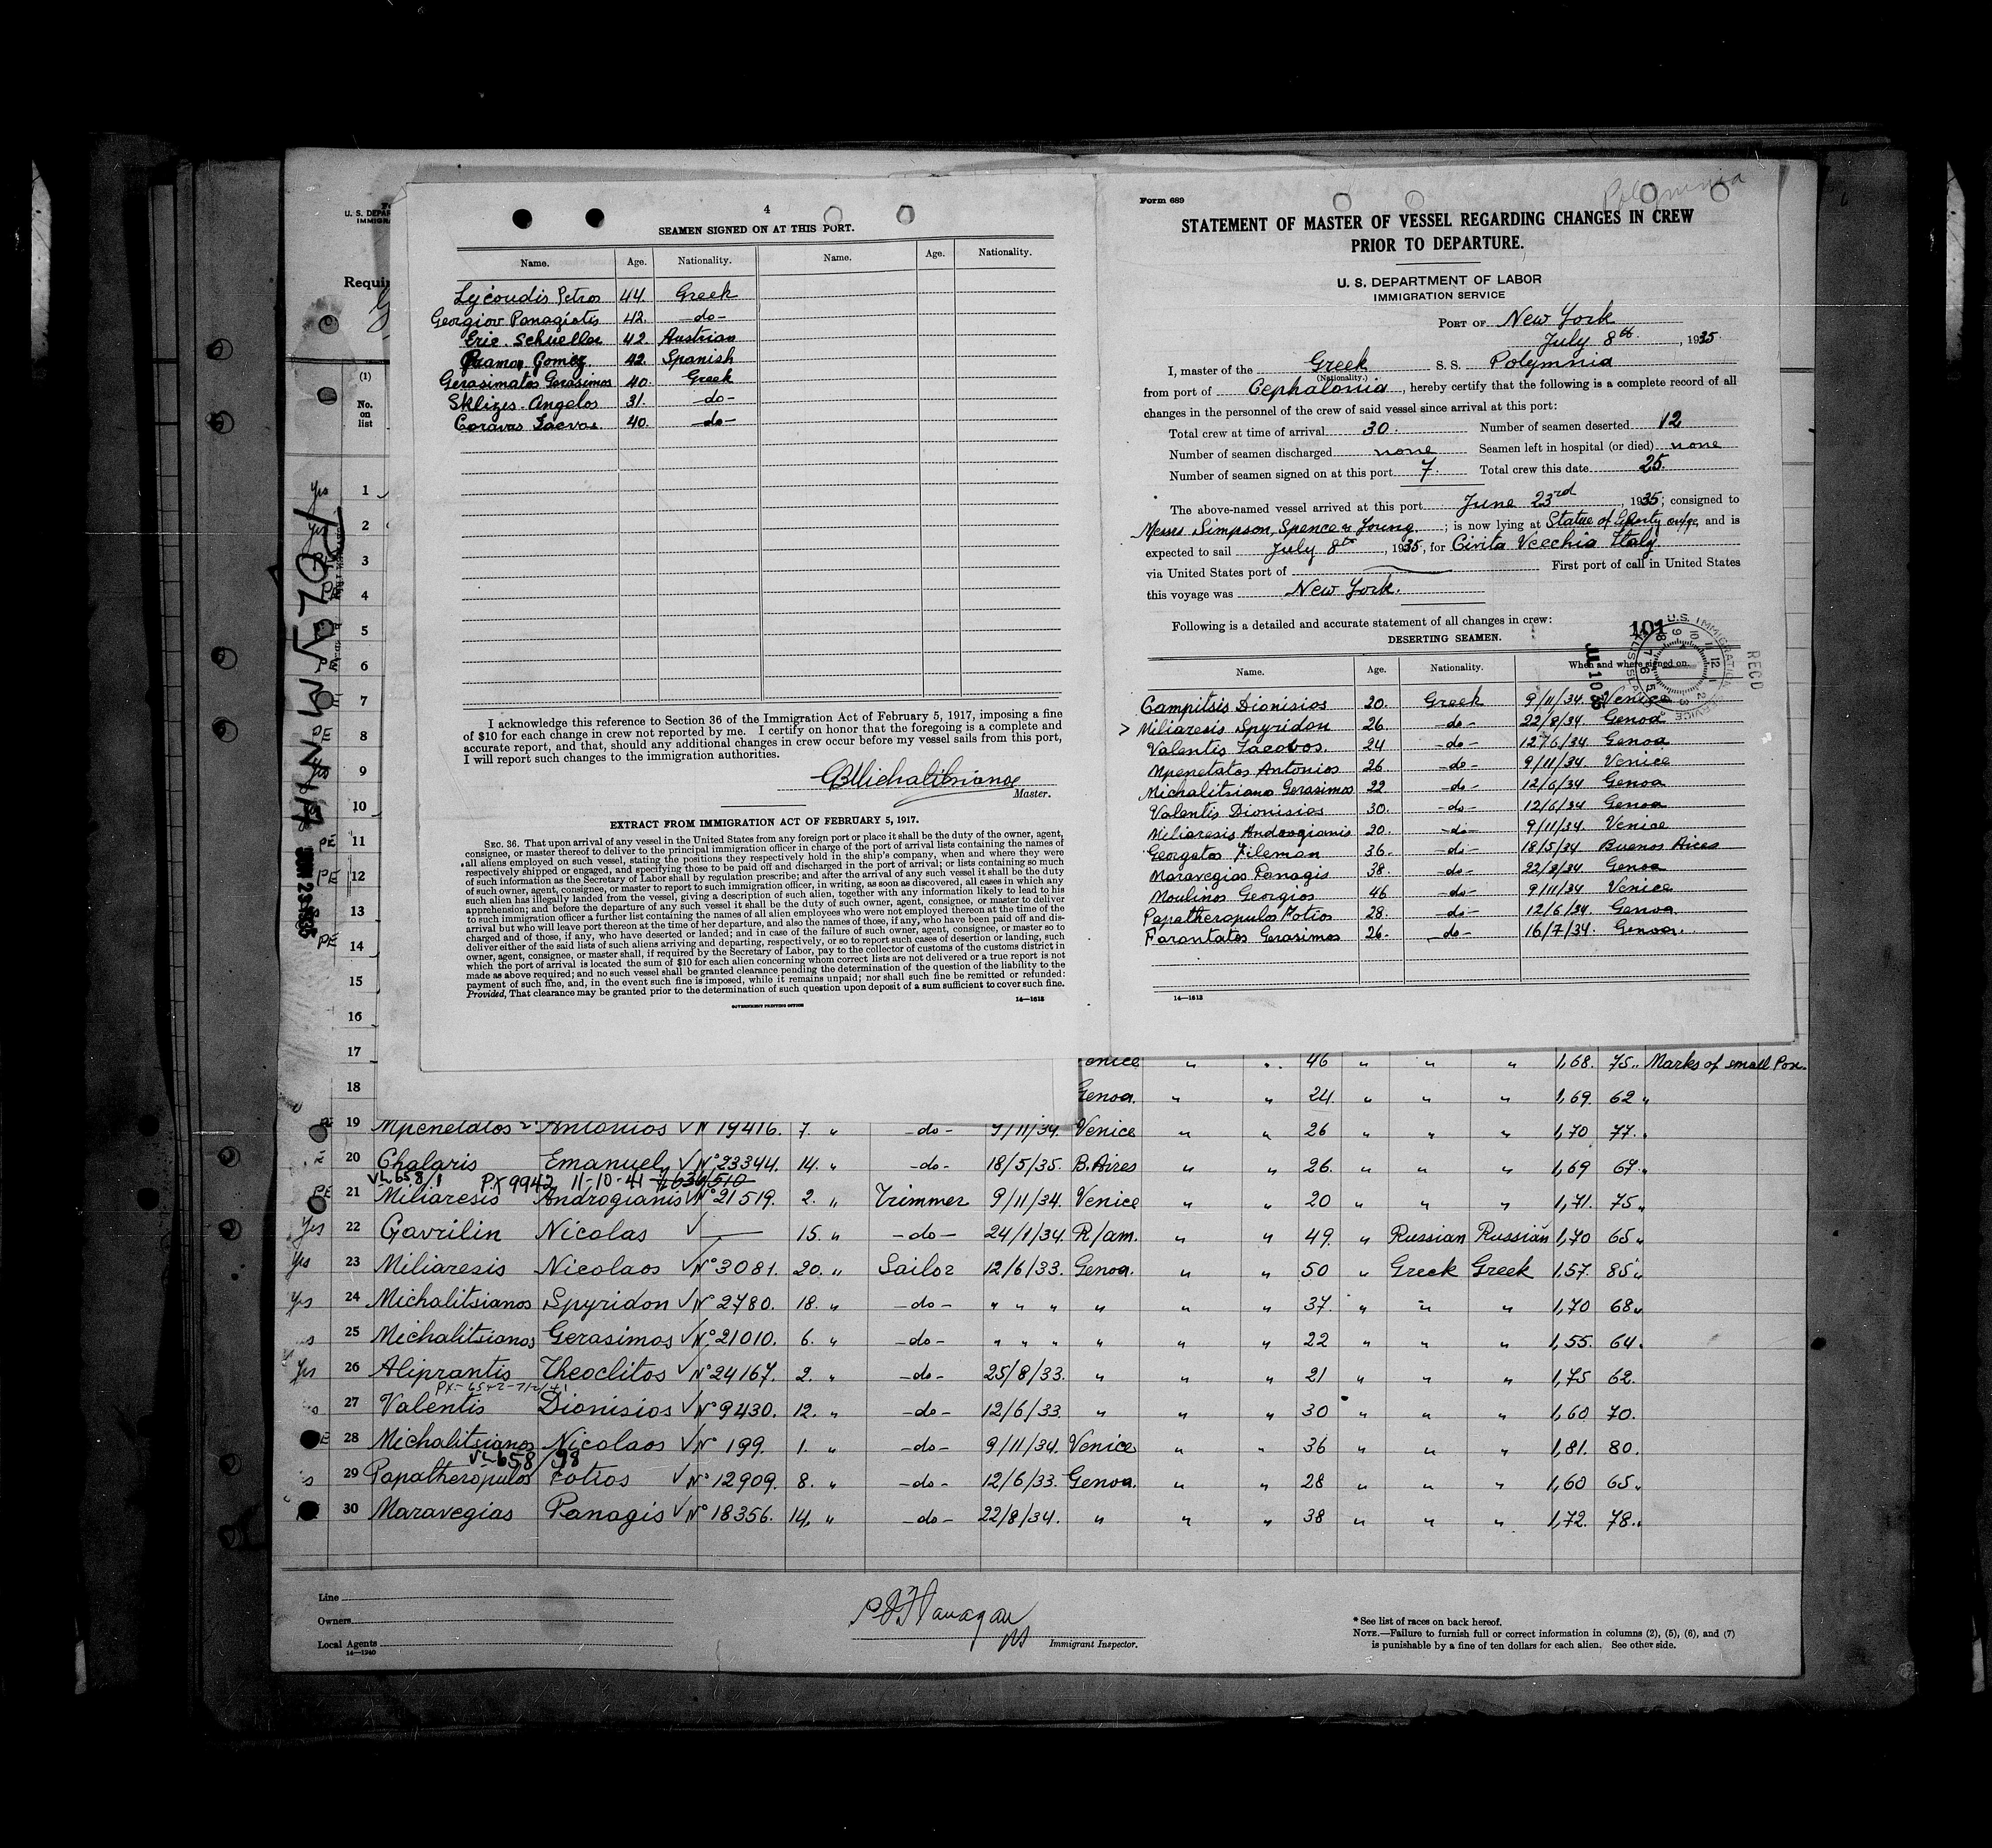 4
SEAMEN SIGNED ON AT THIS PORT.
Name. Age. Nationality. Name. Age. Nationality.
Lycoudis Petros 44. Greek
Georgiou Panagiotis 42. -do-
Eric. Schueller 42. Austrian
Ramon Gomez 42. Spanish
Gerasimatos Gerasimos 40. Greek
Sklizes. Angelos 31. -do-
Coravas 40. -do-
I acknowledge this reference to Section 36 of the Immigration Act of February 5, 1917, imposing a fine
of $10 for each change in crew not reported by me. I certify on honor that the foregoing is a complete and
accurate report, and that, should any additional changes in crew occur before my vessel sails from this port,
I will report such changes to the immigration authorities.
Master.
EXTRACT FROM IMMIGRATION ACT OF FEBRUARY 5, 1917.
SEC. 36. That upon arrival of any vessel in the United States from any foreign port or place it shall be the duty of the owner, agent,
consignee, or master thereof to deliver to the principal immigration officer in charge of the port of arrival lists containing the names of
all aliens employed on such vessel, stating the positions they respectively hold in the ship's company, when and where they were
respectively shipped or engaged, and specifying those to be paid off and discharged in the port of arrival; or lists containing so much
of such information as the Secretary of Labor shall by regulation prescribe; and after the arrival of any such vessel it shall be the duty
of such owner, agent, consignee, or master to report to such immigration officer, in writing, as soon as discovered, all cases in which any
such alien has illegally landed from the vessel, giving a description of such alien, together with any information likely to lead to his
apprehension; and before the departure of any such vessel it shall be the duty of such owner, agent, consignee, or master to deliver
to such immigration officer a further list containing the names of all alien employees who were not employed thereon at the time of the
arrival but who will leave port thereon at the time of her departure, and also the names of those, if any, who have been paid off and dis-
charged and of those, if any, who have deserted or landed; and in case of the failure of such owner, agent, consignee, or master so to
deliver either of the said lists of such aliens arriving and departing, respectively, or so to report such cases of desertion or landing, such
owner, agent, consignee, or master shall, if required by the Secretary of Labor, pay to the collector of customs of the customs district in
which the port of arrival is located the sum of $10 for each alien concerning whom correct lists are not delivered or a true report is not
made as above required; and no such vessel shall be granted clearance pending the determination of the question of the liability to the
payment of such fine, and, in the event such fine is imposed, while it remains unpaid; nor shall such fine be remitted or refunded:
Provided, That clearance may be granted prior to the determination of such question upon deposit of a sum sufficient to cover such fine.
GOVERNMENT PRINTING OFFICE 14—1613
Polymnia
Form 689
STATEMENT OF MASTER OF VESSEL REGARDING CHANGES IN CREW
PRIOR TO DEPARTURE.
U. S. DEPARTMENT OF LABOR
IMMIGRATION SERVICE
PORT OF New York
July 8th, 1935.
I, master of the Greek S. S. Polymnia
(Nationality.)
from port of Cephalonia, hereby certify that the following is a complete record of all
changes in the personnel of the crew of said vessel since arrival at this port:
Total crew at time of arrival 30. Number of seamen deserted 12
Number of seamen discharged none Seamen left in hospital (or died) none
Number of seamen signed on at this port 7. Total crew this date 25.
The above-named vessel arrived at this port June 23rd, 1935; consigned to
Messrs Simpson, Spence & Young; is now lying at Statue of Liberty, and is
expected to sail July 8th, 1935, for Civita Vecchia Italy
via United States port of First port of call in United States
this voyage was New York.
Following is a detailed and accurate statement of all changes in crew:
DESERTING SEAMEN.
101
U.S. IMMIGRATION SERVICE
RECD
JUL 10 35
Name. Age. Nationality. When and where signed on.
Campitsis Dionisios 20. Greek 9/11/34. Venice
> Miliaresis Spyridon 26. -do- 22/8/34. Genoa
Valentis Iacovos. 24 -do- 12/6/34 Genoa
Mpenetatos Antonios 26. -do- 9/11/34. Venice
Michalitsiano Gerasimos 22. -do- 12/6/34 Genoa
Valentis Dionisios 30. -do- 12/6/34 Genoa
Miliaresis Androgianis 20. -do- 9/11/34. Venice
Georgatos Fileman 36. -do- 18/5/34 Buenos Aires
Maravegias Panagis 38. -do- 22/8/34. Genoa
Moulinos Georgios 46 -do- 9/11/34. Venice
Papatheropulos Fotios 28. -do- 12/6/34 Genoa
Farantatos Gerasimos 26. -do- 16/7/34 Genoa.
14—1613
U. S. DEPAR
IMMIGRA
Requir
(1)
No.
on
list
POLYMNIA
JUN 23 1935
Yes 1
Yes 2
3
PE 4
5
PE 6
7
PE 8
Yes 9
10
PE 11
PE 12
13
PE 14
15
16
17 enice " " 46 " " " 1,68. 75" Marks of small Pox.
18 Genoa. " " 24. " " " 1,69. 62"
19 Mpenetatos Antonios √ No 19416. 7. " -do- 9/11/34. Venice " " 26 " " " 1,70 77."
20 Chalaris Emanuel √ No 23344. 14. " -do- 18/5/35. B. Aires " " 26. " " " 1,69 67."
VL 658/1 PX 9942 11-10-41
PE 21 Miliaresis Androgianis √ No 21519. 2. " Trimmer 9/11/34. Venice " " 20 " " " 1,71. 75"
Yes 22 Gavrilin Nicolas √ — 15. " -do- 24/1/34. R/am. " " 49. " Russian Russian 1,70 65"
Yes 23 Miliaresis Nicolaos √ No 3081. 20. " Sailor 12/6/33. Genoa. " " 50 " Greek Greek 1,57. 85"
Yes 24 Michalitsianos Spyridon √ No 2780. 18. " -do- " " " " " " 37. " " " 1,70 68"
s 25 Michalitsianos Gerasimos √ No 21010. 6. " -do- " " " " " " 22 " " " 1,55. 64"
Yes 26 Aliprantis Theoclitos √ No 24167. 2. " -do- 25/8/33. " " " 21 " " " 1,75 62.
27 Valentis Dionisios √ No 9430. 12. " -do- 12/6/33. " " " 30 " " " 1,60 70.
28 Michalitsianos Nicolaos √ No 199. 1. " -do- 9/11/34. Venice " " 36 " " " 1,81. 80.
VL 658/98
s 29 Papatheropulos Fotios √ No 12909. 8. " -do- 12/6/33. Genoa. " " 28 " " " 1,60 65"
30 Maravegias Panagis √ No 18356. 14. " -do- 22/8/34. " " " 38 " " " 1,72. 78."
Line
Owners
Local Agents
14—1240
Immigrant Inspector.
* See list of races on back hereof.
NOTE.—Failure to furnish full or correct information in columns (2), (5), (6), and (7)
is punishable by a fine of ten dollars for each alien. See other side.